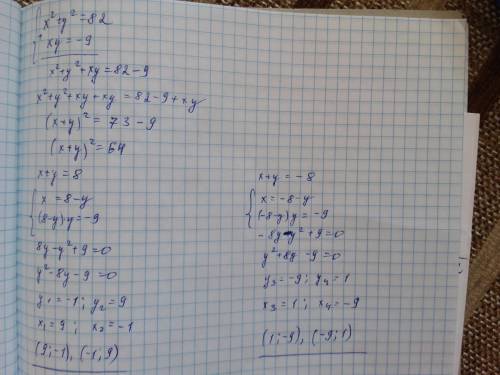 x²+y²=82
xy=-9
x²+y²+xy=82-9
x²+y²+xy+xy=82-9+xy
(x+y)²=73-9
(x+y)²=64
x+y=8
x=8-y
(8-y)y=-9
8y-y²+9=0
y²-8y-9=0
y₁=-1; y₂=9
x₁=9; x₂=-1
(9;-1), (-1;9)
x+y=-8
x=-8-y
(-8-y)y=-9
-8y-y²+9=0
y²+8y-9=0
y₃=-9; y₄=1
x₃=1; x₄=-9
(1;-9), (-9;1)